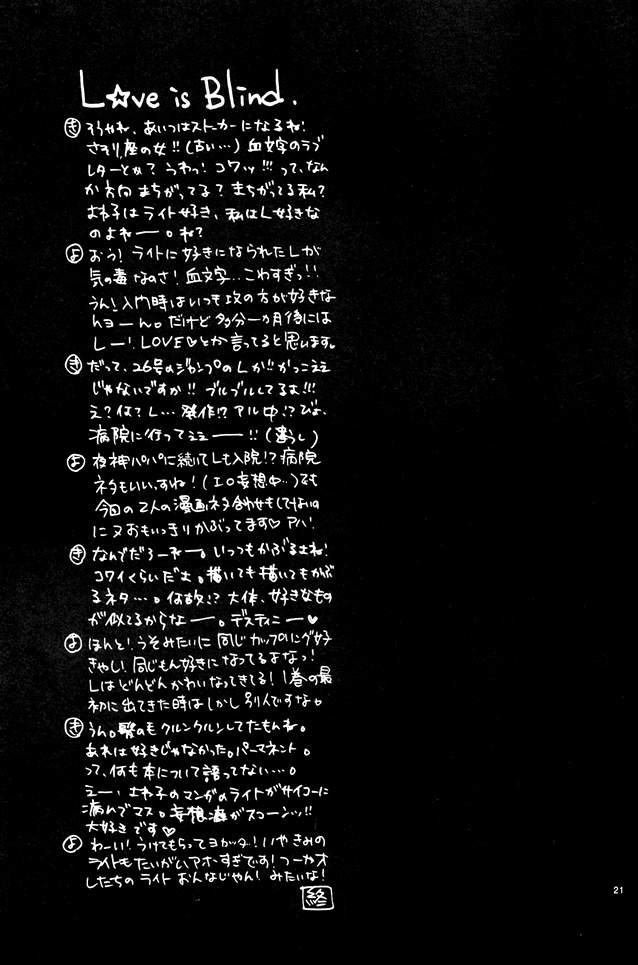 L☆ve is Blind.
き そうやね、あいつはストーカーになるね!
さそり座の女!!(古い…)血文字のラブ
レターとか?うわっ!コワッ!!!って、なん
か方向まちがってる?まちがってる私?
よね子はライト好き、私はL好きな
のよねー。ね?
よ おう!ライトに好きになられたLが
気の毒なのさ!血文字…こわすぎっ!!
うん!入門時はいつも攻の方が好きな
んヨーん。だけど多分一ヵ月後には
しー!LOVE♡とか言ってると思います。
き だって、26号のジャンプのLが!!かっこええ
じゃないですか!!ブルブルしてるよ!!!
え?何?L…発作!?アル中!?びょ、
病院に行ってえぇー!!(違うし)
よ 夜神パパに続いてLも入院!?病院
ネタもいいっすね!(エロ妄想中…)でも
今回の2人の漫画ネタ合わせもしてないの
にヌおもいっきりかぶってます♡アハ!
き なんでだろーねー。いっつもかぶるよね!
コワイくらいだよ。描いても描いてもかぶ
るネタ…。何故!?大体、好きなもの
が似てるからなー。デスティニー♥
よ ほんと!うそみたいに同じカップリング好
きやし!同じもん好きになってるよなっ!
Lはどんどんかわいなってきてる!1巻の最
初に出てきた時はしかし別人ですな。
き うん。髪の毛クルンクルンしてたもんね。
あれは好きじゃなかった。パーマネント。
って、何も本について語ってない…。
えー、よね子のマンガのライトがサイコーに
病んでマス。妄想癖がスコーンッ!!
大好きです♡
よ わーい!うけてもらってヨカッタ!いやきみの
ライトもたいがいアホすぎです!つーかオ
レたちのライトおんなじゃん!みたいな!
終
21